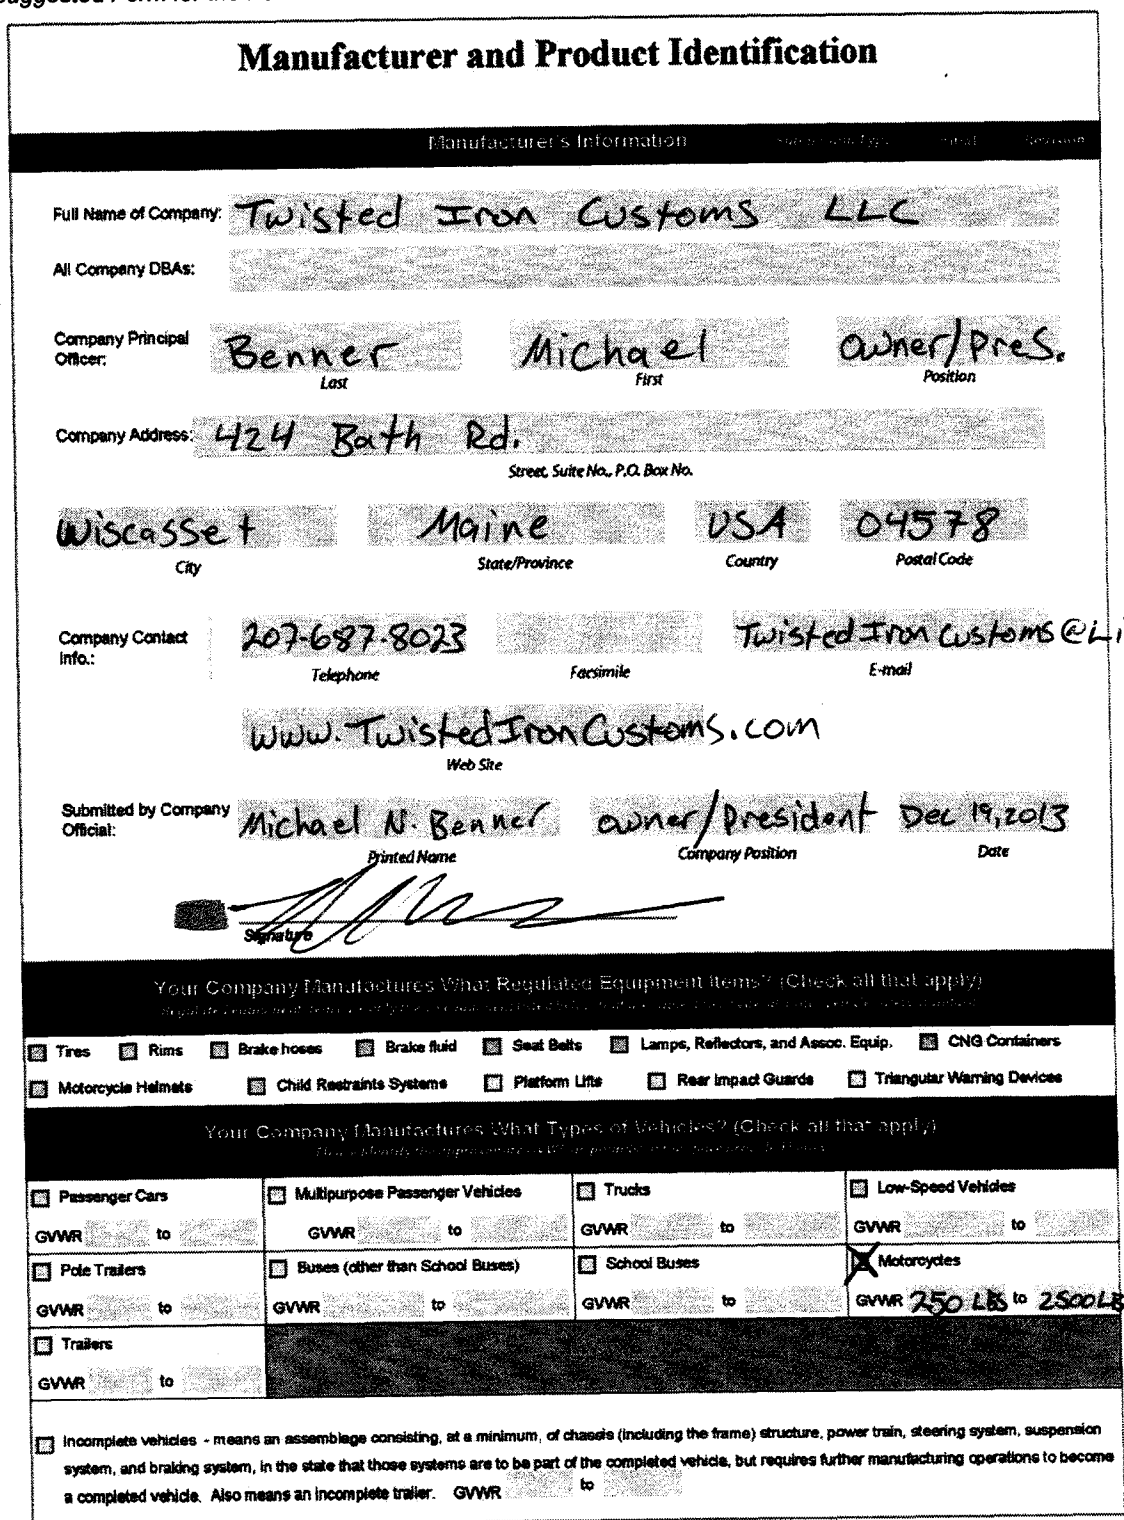 Manufacturer and Product Identification
Manufacturer's Information
Full Name of Company: Twisted Iron Customs LLC
All Company DBAs:
Company Principal Officer: Benner Michael Owner/Pres.
Last First Position
Company Address: 424 Bath Rd.
Street, Suite No., P.O. Box No.
Wiscasset Maine USA 04578
City State/Province Country Postal Code
Company Contact Info.: 207-687-8023 TwistedIronCustoms@Li
Telephone Facsimile E-mail
www.TwistedIronCustoms.com
Web Site
Submitted by Company Official: Michael N. Benner owner/President Dec 19, 2013
Printed Name Company Position Date
Signature
Your Company Manufactures What Regulated Equipment Items? (Check all that apply)
Tires Rims Brake hoses Brake fluid Seat Belts Lamps, Reflectors, and Assoc. Equip. CNG Containers
Motorcycle Helmets Child Restraints Systems Platform Lifts Rear Impact Guards Triangular Warning Devices
Your Company Manufactures What Types of Vehicles? (Check all that apply)
Passenger Cars Multipurpose Passenger Vehicles Trucks Low-Speed Vehicles
GVWR to GVWR to GVWR to GVWR to
Pole Trailers Buses (other than School Buses) School Buses Motorcycles
GVWR to GVWR to GVWR to GVWR 250 LBS to 2500 LB
Trailers
GVWR to
Incomplete vehicles - means an assemblage consisting, at a minimum, of chassis (including the frame) structure, power train, steering system, suspension
system, and braking system, in the state that those systems are to be part of the completed vehicle, but requires further manufacturing operations to become
a completed vehicle. Also means an incomplete trailer. GVWR to